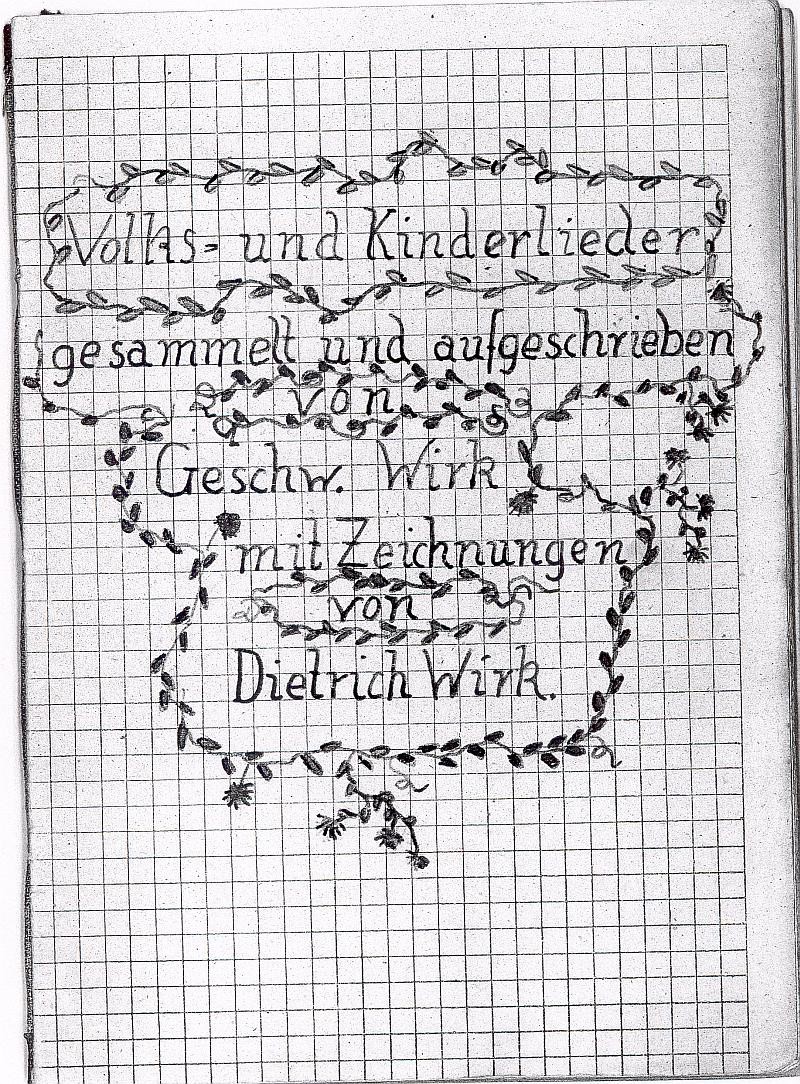 Volks= und Kinderlieder
gesammelt und aufgeschrieben
von
Geschw. Wirk
mit Zeichnungen
von
Dietrich Wirk.